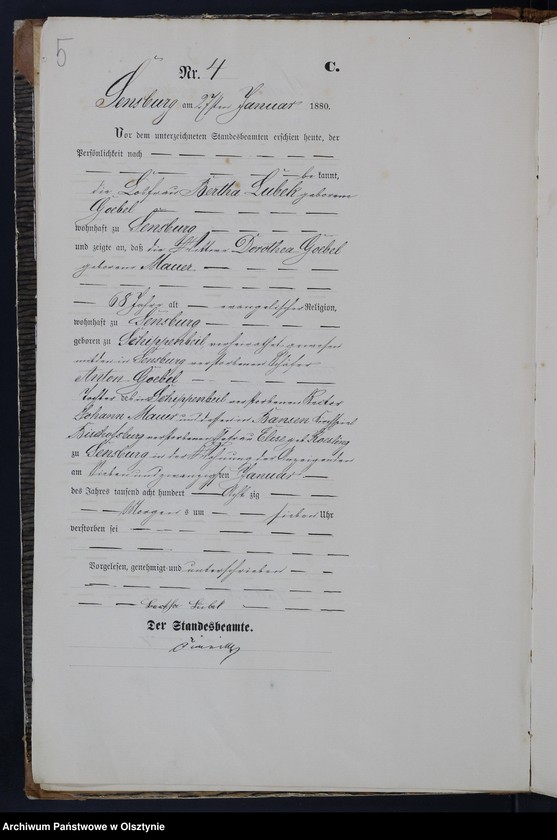 5
Nr. 4
C.
Sensburg am 27ten Januar 1880.
Vor dem unterzeichneten Standesbeamten erschien heute, der
Persönlichkeit nach
be kannt,
die Losfrau Bertha Lubek geborene
Goebel
wohnhaft zu Sensburg
und zeigte an, daß die Dorothea Goebel
geborene Mauer
68 Jahre alt evangelischer Religion,
wohnhaft zu Sensburg
geboren zu Schippenbeil verheirathet gewesen
in Sensburg verstorbenen
Anton Goebel
Tochter Schippenbeil verstorbenen
Johann Mauer und dessen in Bansen
Bischofsburg verstorbenen Ehefrau geb.
zu Sensburg in der Wohnung der Anzeigenden
am Sieben und zwanzigsten Januar
des Jahres tausend acht hundert Acht zig
Morgen s um sieben Uhr
verstorben sei
Vorgelesen, genehmigt und unterschrieben
Bertha Lubek
Der Standesbeamte.
Archiwum Państwowe w Olsztynie